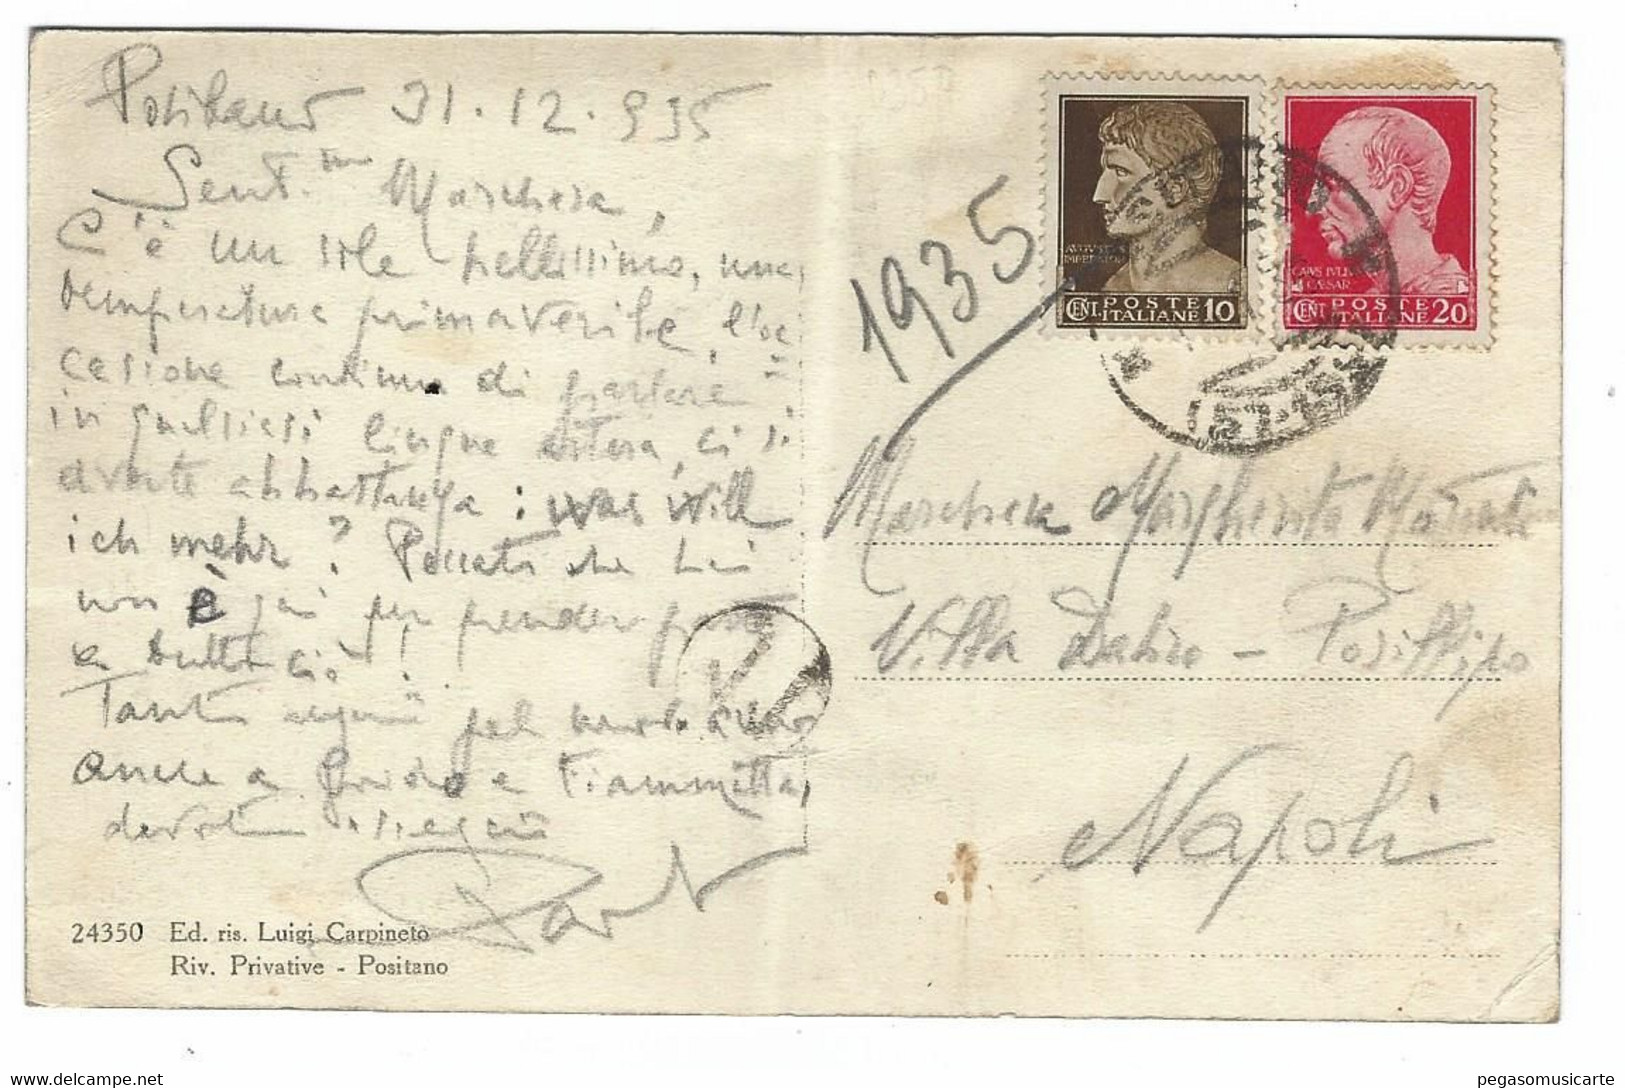 Positano 31.12.935
Gent.ma Marchesa,
C'è un sole bellissimo, una
temperatura primaverile, l'oc
casione continua di parlare
in qualsiasi lingua estera, ci si
diverte abbastanza: was will
ich mehr? Peccato che Lei
non è qui per prender parte
a tutto ciò!
Tanti auguri pel nuovo anno
anche a Guido e Fiammetta,
devoti ossequi
1935
AVGVSTVS
IMPERATOR
CENT. POSTE
ITALIANE 10
CAIVS IVLIVS
CAESAR
CENT. POSTE
ITALIANE 20
Marchesa Margherita
Villa - Posillipo
Napoli
24350 Ed. ris. Luigi Carpineto
Riv. Privative - Positano
pegasomusicarte